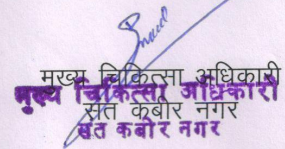 मुख्य चिकित्सा अधिकारी
मुख्य चिकित्सा अधिकारी
संत कबीर नगर
संत कबीर नगर